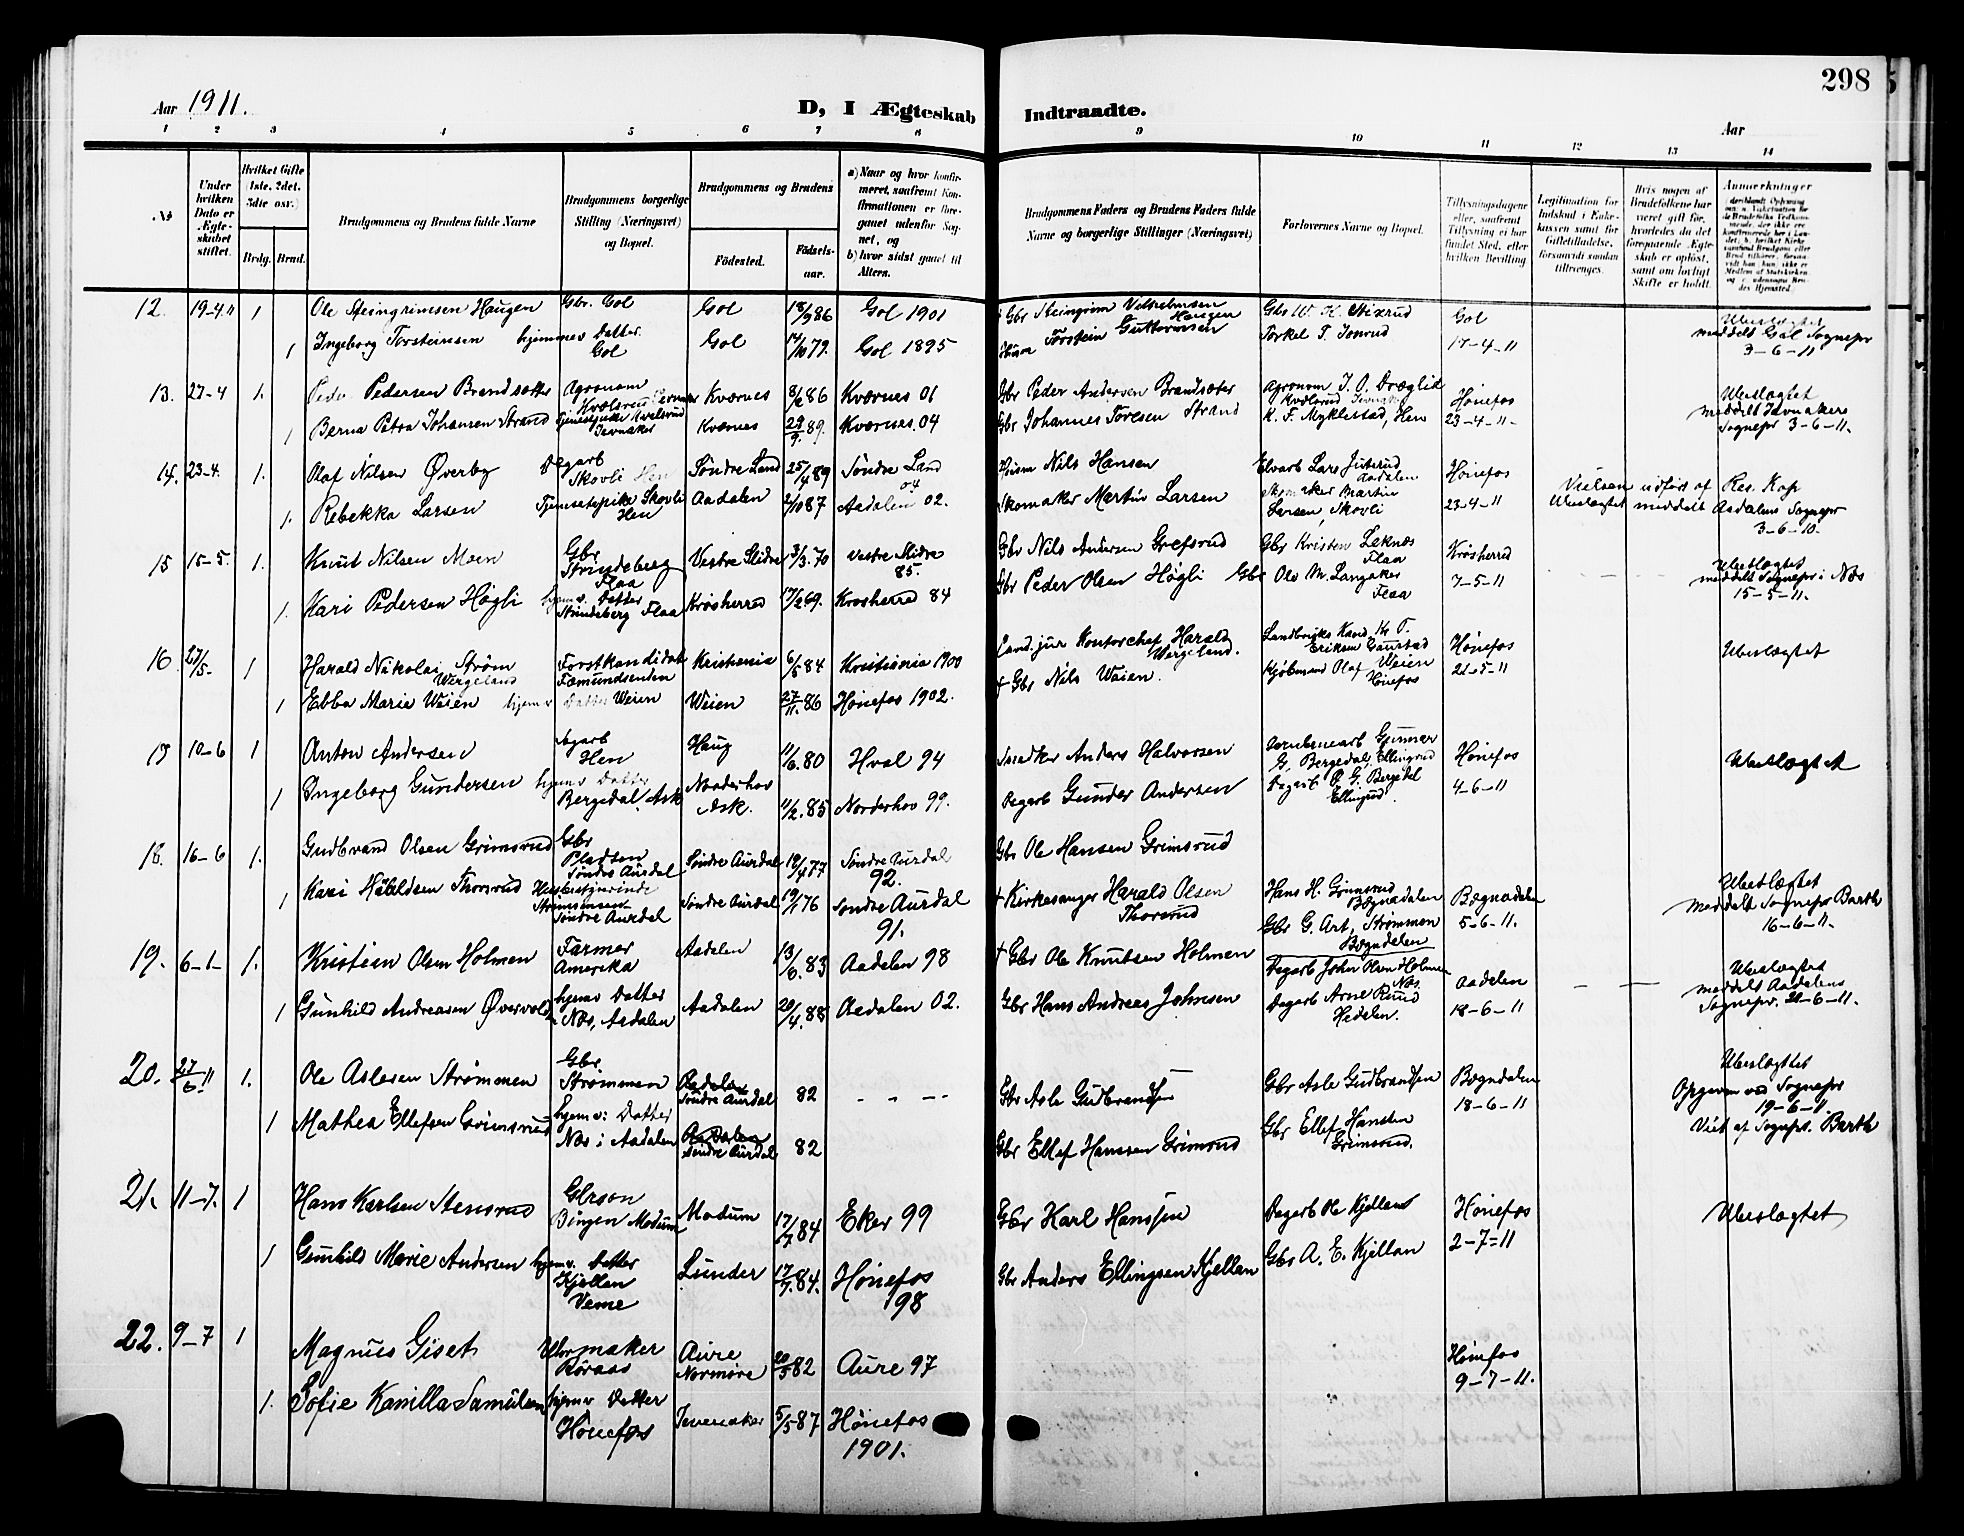 298
Aar 1911.
D, I Ægteskab Indtraadte.
Aar
1 2 3 4 5 6 7 8 9 10 11 12 13 14
No
Under hvilken Dato er Ægteskabet stiftet.
Hvilket Gifte (1ste, 2det, 3die osv.)
Brdg. Brud.
Brudgommens og Brudens fulde Navne
Brudgommens borgerlige Stilling (Næringsvei) og Bopæl.
Brudgommens og Brudens
Fødested.
Fødselsaar.
a) Naar og hvor konfirmeret, saafremt Konfirmationen er foregaaet udenfor Sognet, og
b) hvor sidst gaaet til Alters.
Brudgommens Faders og Brudens Faders fulde Navne og borgerlige Stillinger (Næringsvei)
Forlovernes Navne og Bopæl.
Tillysningsdagene eller, saafremt Tillysning ei har fundet Sted, efter hvilken Bevilling
Legitimation for Indskud i Enkekassen samt for Giftetilladelse, forsaavidt saadan tiltrænges.
Hvis nogen af Brudefolkene har været gift før, hvorledes da det foregaaende Ægteskab er opløst, samt om lovligt Skifte er holdt.
Anmærkninger
12. 19-4-11 1 Ole Steingrimsen Haugen Gbr. Gol Gol 18/9 86 Gol 1901 Gbr Steingrim Vilhelmsen Haugen Gbr W. K. Nixrud Gol Ubeslægtet
1 Ingeborg Torsteinsen hjemmev Datter Gol Gol 14/10 79. Gol 1895 Husm Torstein Guttormsen Torkel T. Jonrud 17-4-11 meddelt Gol Sognepr 3-6-11
13. 27-4 1. Peder Pedersen Brandsæter Agronom Kværnes 8/2 86 Kværnes 01 Gbr Peder Andersen Brandsæter Agronom J. O. Dræglid Hønefos Ubeslægtet
1 Berna Petra Johansen Strand Tjenestepike Jevnaker Kvernes 29/9. 89. Kværnes. 04 Gbr Johannes Toresen Strand K. F. Myklestad, Hen 23-4-11- meddelt Jevnakers Sognepr 3-6-11.
14. 23-4. 1. Olaf Nilsen Øverby Dagarb Skovli Hen Søndre Land 25/4 89 Søndre Land 04 Husm Nils Hansen Elvarb Lars Juterud Aadalen Hønefos Vielsen udført af Res. Kap
1. Rebekka Larsen Tjenestepike Skovli Hen Aadalen 2/10 87 Aadalen 02. Skomaker Martin Larsen Skomaker Martin Larsen, Skovli 23-4-11 Ubeslægtet meddelt Aadalens Sognepr 3-6-10.
15 15-5. 1. Knut Nilsen Moen Gbr Strindeberg Flaa Vestre Slidre 3/3. 70 Vestre Slidre 85. Gbr Nils Andersen Grefsrud Gbr Kristen Leknes Flaa Krøsherred Ubeslægtet
1. Kari Pedersen Høgli hjemv. Datter Strindeberg Flaa Krøsherred 17/2 69. Krosherred 84 Gbr Peder Olsen Høgli Gbr Ole M. Langaker Flaa 7-5-11 meddelt Sognepr i Næs 15-5-11.
16 27/5. 1 Harald Nikolai Strøm Wergeland Forstkandidat Fæmundsenden Kristiania 6/5 84 Kristiania 1900 Cand. jur Kontorchef Harald Wergeland. Landbruks Kand. Kr. T. Eriksen Gaustad Hønefos Ubeslægtet
1 Ebba Marie Weien hjemv Datter Weien Weien 27/11. 86 Hønefos 1902. + Gbr Nils Weien. Kjøbmand Olaf Weien Hønefos 21-5-11
17 10-6 1 Anton Andersen Dagarb Hen Haug 11/6. 80 Hval 94 Snedker Anders Halvorsen Jernbanearb Gunnar G. Bergedal, Ellingrud Hønefos Ubeslægtet
1 Ingeborg Gundersen hjemv Datter Bergedal, Ask Norderhov Ask. 11/2. 85 Norderhov 99. Dagarb Gunder Andersen Dagarb P. G. Bergedal Ellingrud 4-6-11
18. 16-6 1. Gudbrand Olsen Grimsrud Gbr Pladsen Søndre Aurdal Søndre Aurdal 19/4 77 Søndre Aurdal 92. Gbr Ole Hansen Grimsrud Hans H. Grimsrud Bægnadalen Bægnadalen Ubeslægtet
1 Kari Haraldsen Thorsrud Søndre Aurdal Søndre Aurdal 19/1 76 Søndre Aurdal 91. + Kirkesanger Harald Olsen Thorsrud Gbr G. Art, Strømmen Bægndalen 5-6-11. meddelt Sognepr Barth 16-6-11.
19. 6-1- 1. Kristian Olsen Holmen Farmer Amerika Aadalen 13/6. 83 Aadalen 98 + Gbr Ole Knutsen Holmen Dagarb Johan Olsen Holmen Næs. Aadalen Ubeslægtet
1 Gunhild Andreasen Øvervold hjemv Datter Næs, Aadalen Aadalen 20/4. 88 Aadalen 02. Gbr Hans Andreas Johnsen Dagarb Arne Ruud Hedalen. 18-6-11 meddelt Aadalens Sognepr. 21-6-11.
20. 27/6 11 1. Ole Aslesen Strømmen Gbr Strømmen Aadalen Søndre Aurdal 82 - - - Gbr Asle Gudbrandsen Gbr Asle Gudbrandsen Bægndalen Ubeslægtet
1 Mathea Ellefsen Grimsrud hjemv: Datter Næs i Aadalen Aadalen Søndre Aurdal 82 Gbr Ellef Hanssen Grimsrud Gbr Ellef Hansten Grimsrud. 18-6-11 Opgaven ved Sognepr 19-6-11 Viet af Sognepr. Barth
21. 11-7. 1 Hans Karlsen Stensrud Gbrsøn Bingen Modum Modum 17/7 84 Eker 99 Gbr Karl Hanssen Dagarb Ole Kjelland Hønefos Ubeslægtet
1 Gunhild Marie Andersen hjemv. Datter Kjellan Veme Lunder 17/7. 84. Hønefos 98 Gbr Anders Ellingsen Kjellan Gbr A. E. Kjellan 2-7-11
22. 9-7 1 Magnus Giset Uhrmaker Røraas Aure Normøre 20/5 82 Aure 97 Hønefos
1. Sofie Kamilla Samuelsen hjemv Datter Hønefos Jevnaker 5/5-87 Hønefos 1901. 9-7-11.